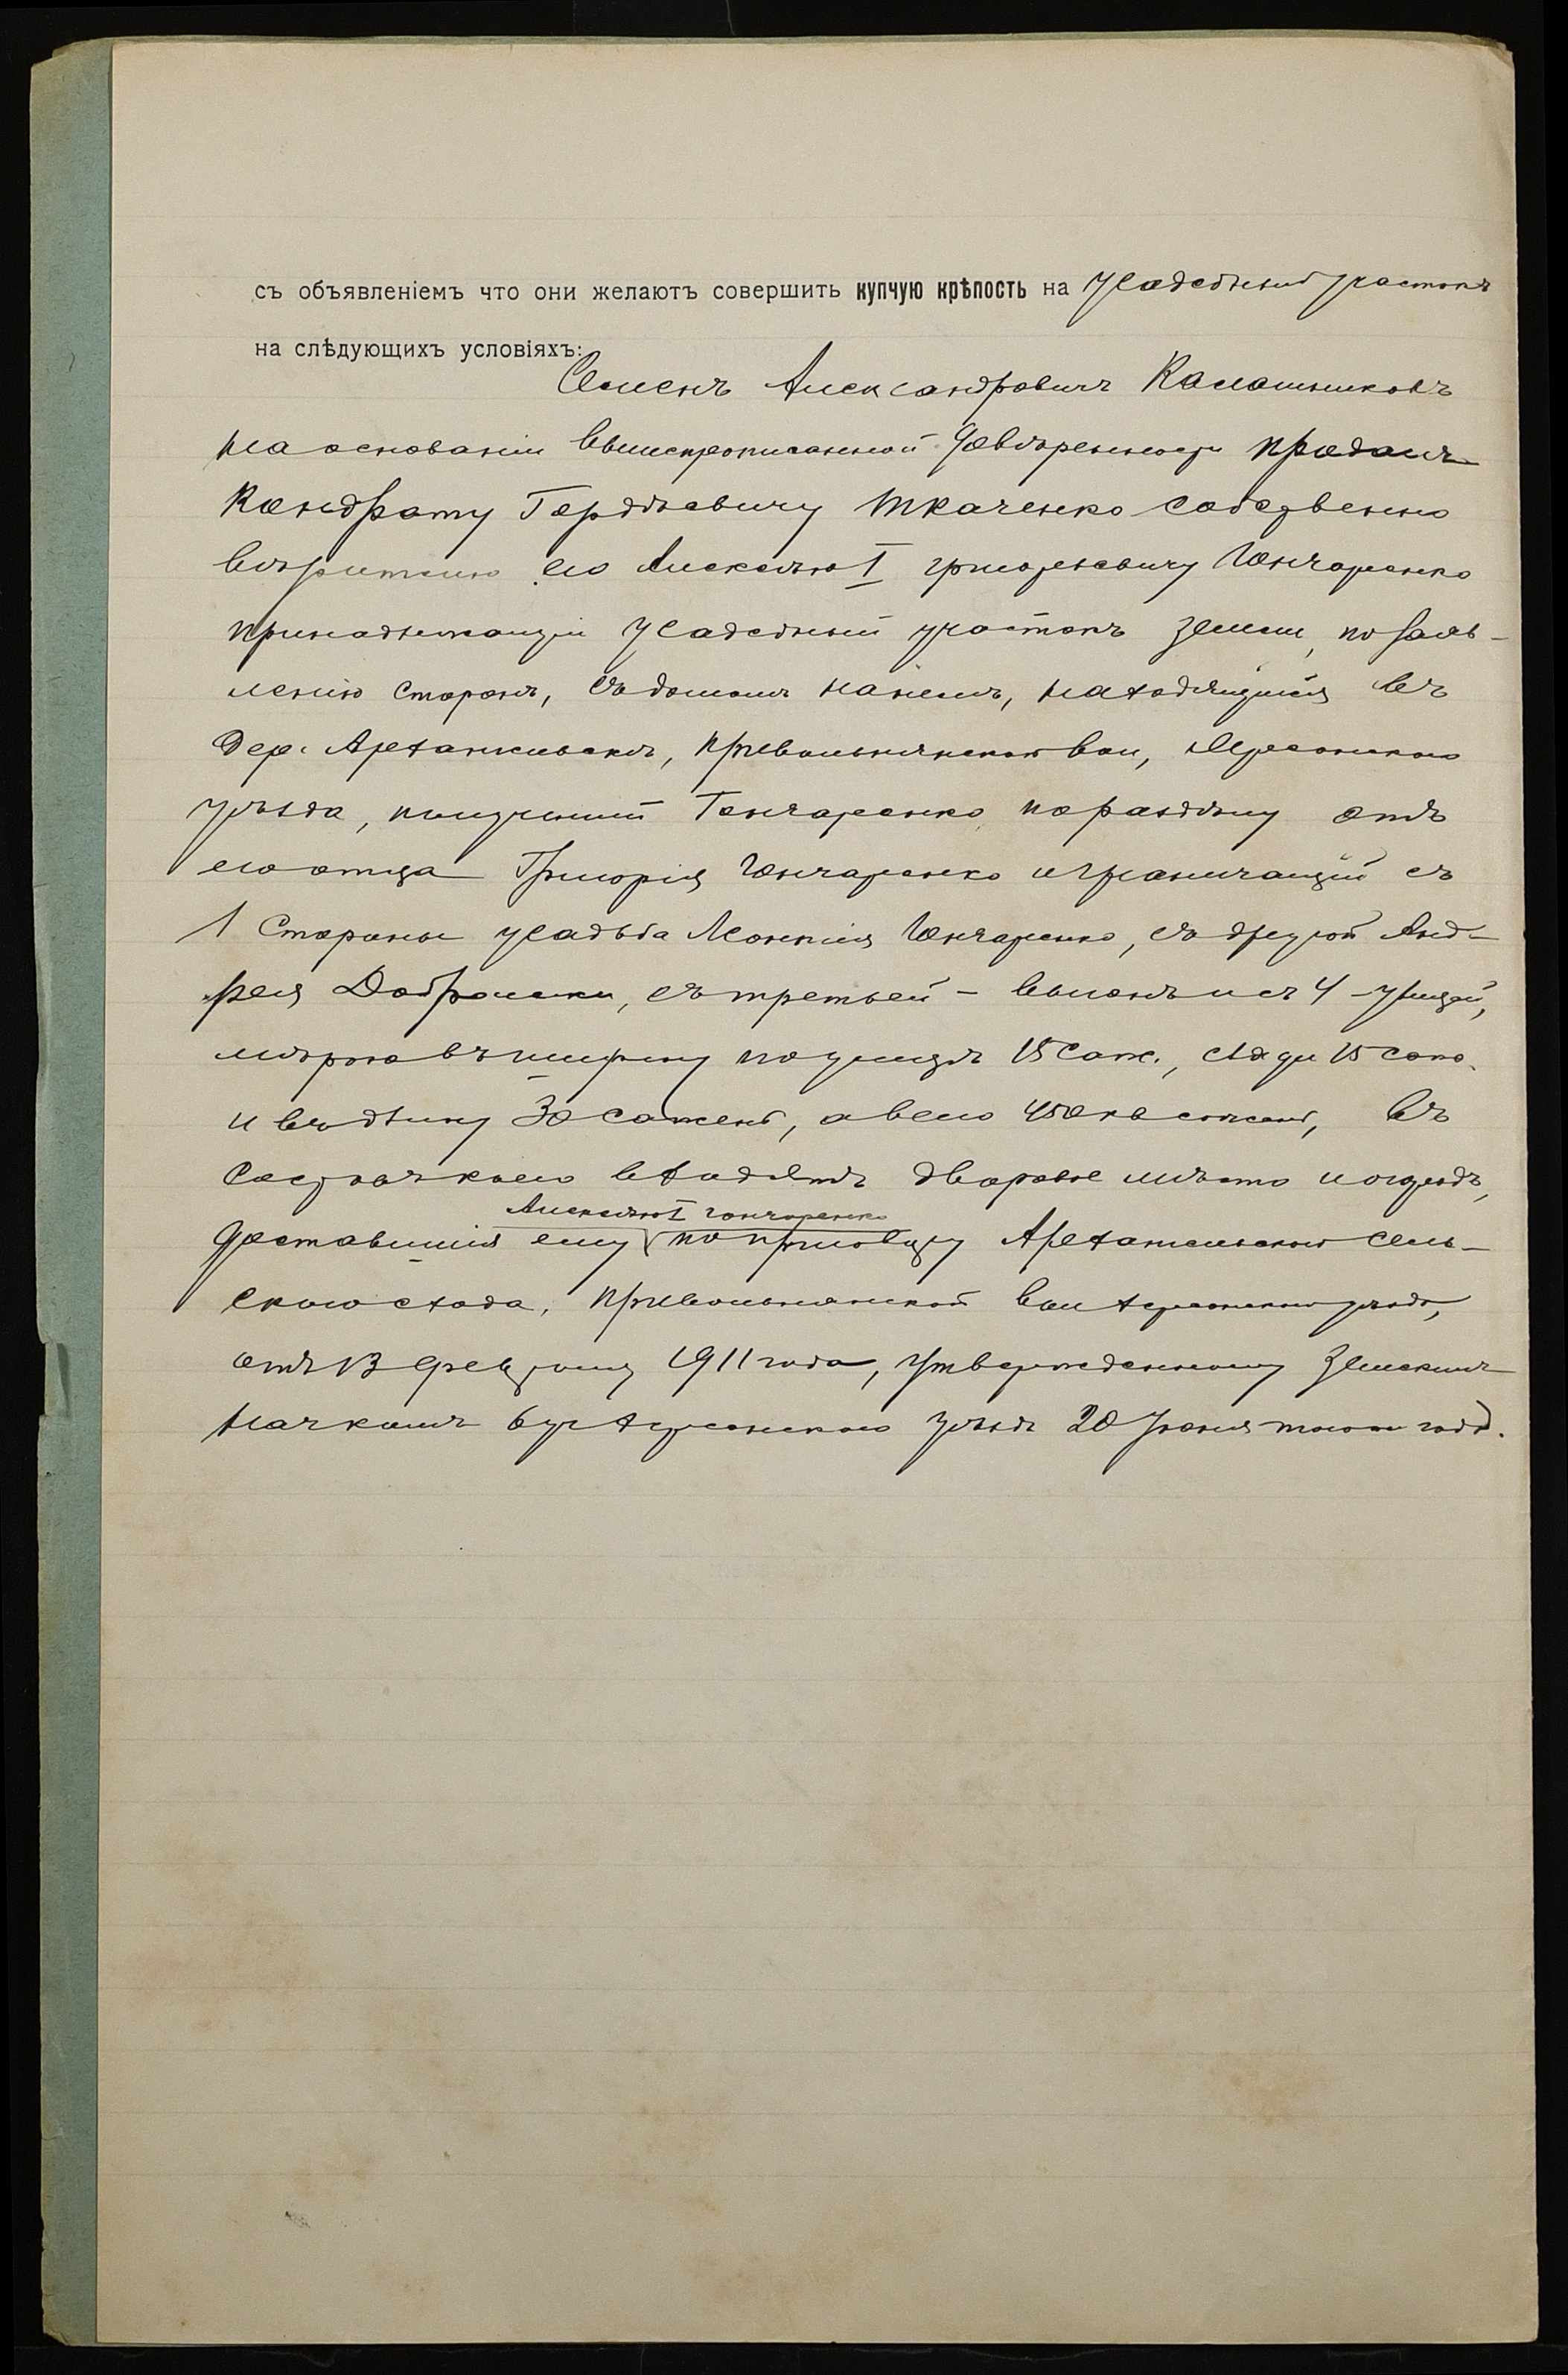 съ объявленіемъ что они желаютъ совершить купчую крѣпость на усадебный участокъ
на слѣдующихъ условіяхъ:
Семенъ Александровичъ Калашниковъ
на основаніи вышепрописанной довѣренности продалъ
Кондрату Гордѣевичу Ткаченко собственно
вѣрителю его Алексѣю I Григорьевичу Гончаренко
принадлежащій усадебный участокъ земли, по заяв-
ленію сторонъ, съ домомъ на немъ, находящійся въ
дер. Архангельскѣ, Привольнянской вол, Херсонскаго
уѣзда, полученный Гончаренко по раздѣлу отъ
его отца Григорія Гончаренко и граничащій съ
1 стороны усадьба Леонтія Гончаренко, съ другой Анд-
рея, съ третьей - выгонъ и съ 4 - улицей,
мѣрою въ ширину по улицѣ 15 саж., сзади 15 саж.
и въ длину 30 сажень, а всего 450 кв сажень, въ
составъ коего входятъ дворовое мѣсто и огородъ,
Алексѣю I Гончаренко
доставшійся ему по приговору Архангельскаго сель-
скаго схода, Привольнянской вол Херсонскаго уѣзда,
отъ 13 февраля 1911 года, утвержденному Земскимъ
Нач-комъ 6 уч Херсонскаго уѣзда 20 Іюня того же года.